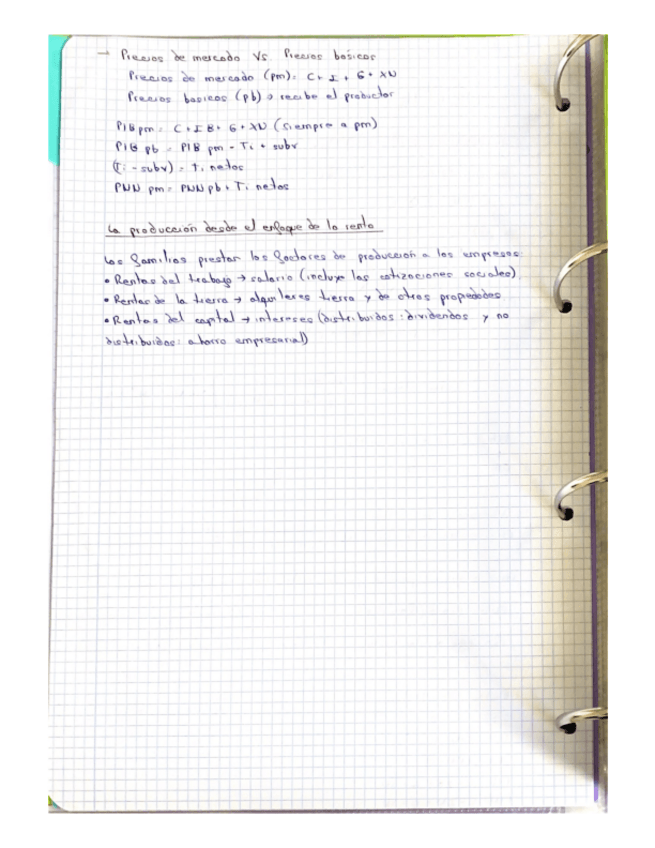 → Precios de mercado Vs. Precios basicos
Precios de mercado (pm) = C + I + G + XN
Precios basicos (pb) → recibe el productor
PIB pm = C + IB + G + XN (siempre a pm)
PIB pb = PIB pm - Ti + subv
(Ti - subv) = Ti netos
PNN pm = PNN pb + Ti netos
La producción desde el enfoque de la renta
Las familias prestan los factores de producción a las empresas:
• Rentas del trabajo → salario (incluye las cotizaciones sociales)
• Rentas de la tierra → alquileres tierra y de otras propiedades
• Rentas del capital → intereses (distribuidos: dividendos y no
distribuidos: ahorro empresarial)